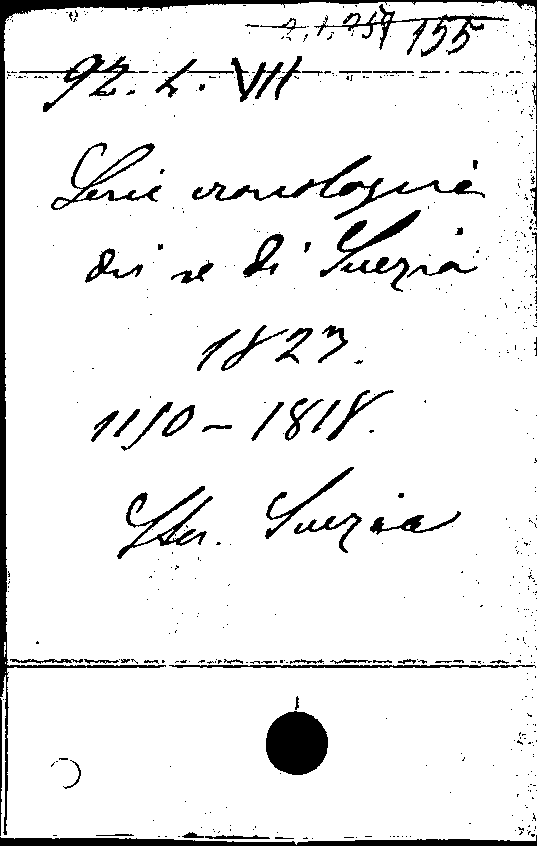 2.1.257 155
92. L. VII
Serie cronologica
dei re di Svezia
1823.
1150 - 1818.
Stor. Svezia